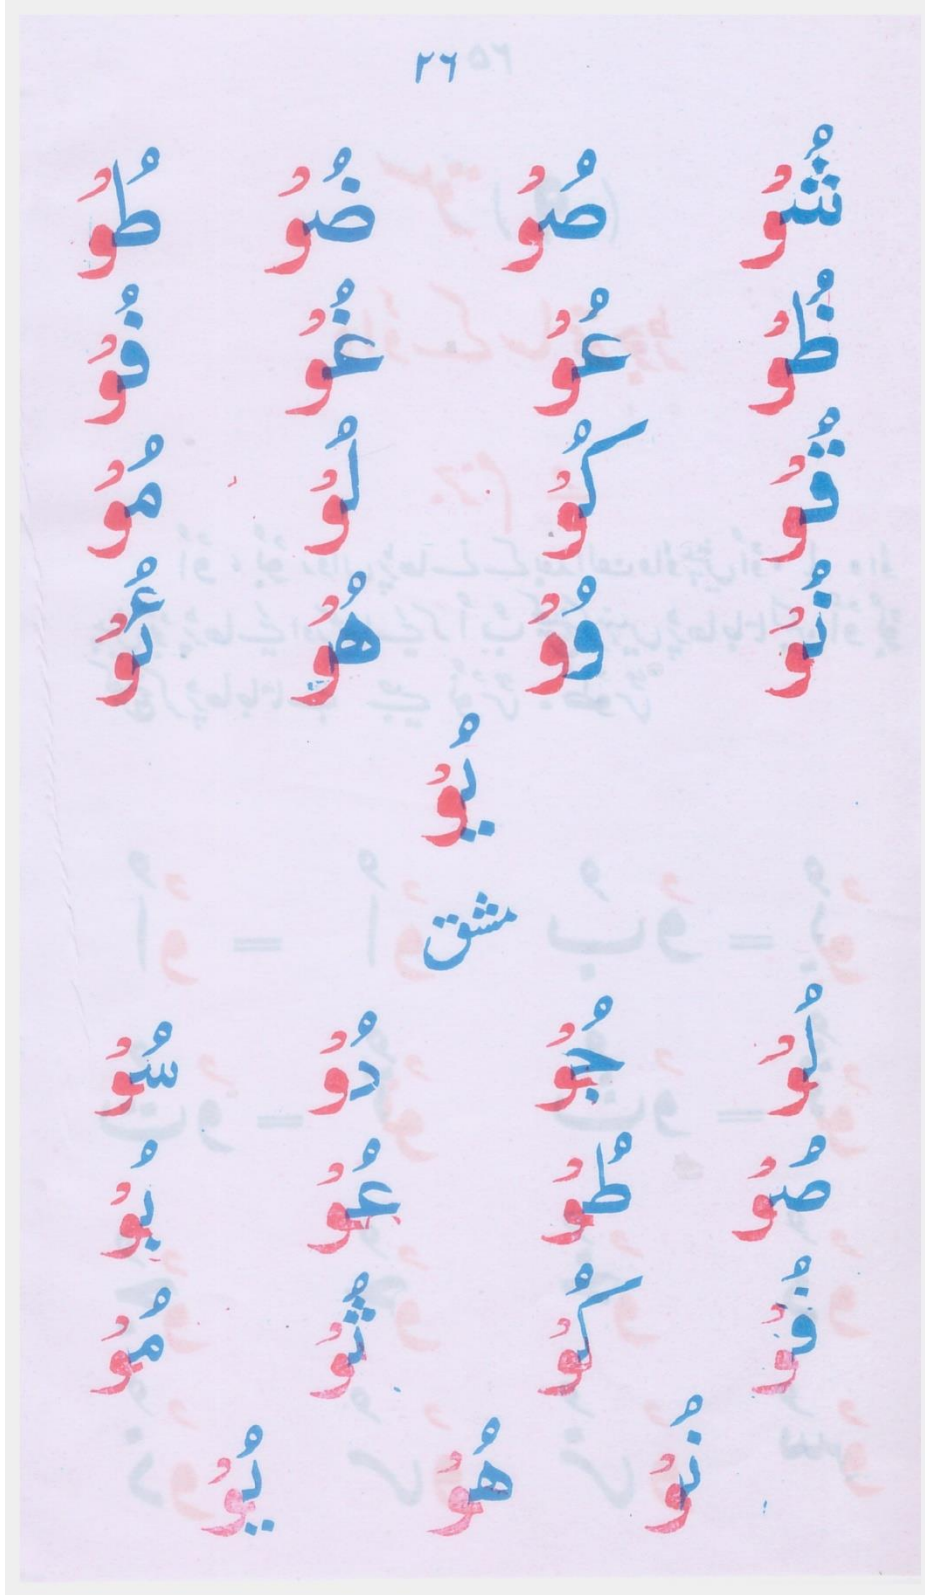 ۲۶
شُوْ صُوْ ضُوْ طُوْ
ظُوْ عُوْ غُوْ فُوْ
قُوْ كُوْ لُوْ مُوْ
نُوْ وُوْ هُوْ ئُوْ
يُوْ
مشق
لُوْ جُوْ دُوْ سُوْ
صُوْ طُوْ عُوْ بُوْ
فُوْ كُوْ ثُوْ مُوْ
نُوْ هُوْ يُوْ